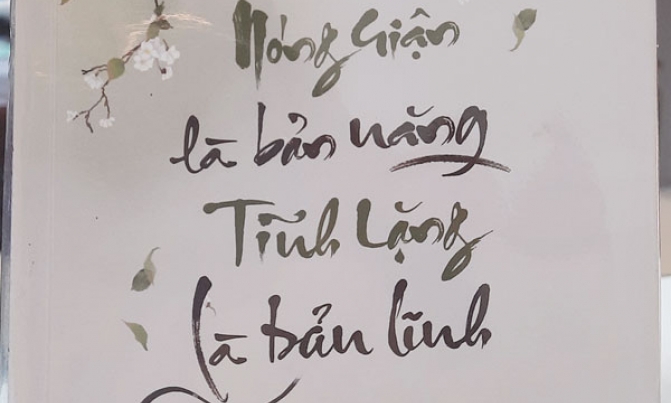 Nóng Giận
là bản năng
Tĩnh Lặng
là bản lĩnh